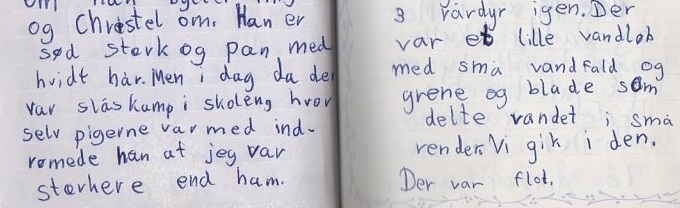 og Christel om. Han er
sød stærk og pæn med
hvidt hår. Men i dag da der
var slåskamp i skoleng hvor
selv pigerne var med ind-
rømede han at jeg var
stærkere end ham.
3 rårdyr igen. Der
var et lille vandløb
med små vandfald og
grene og blade som
delte vandet i små
render. Vi gik i den.
Der var flot.